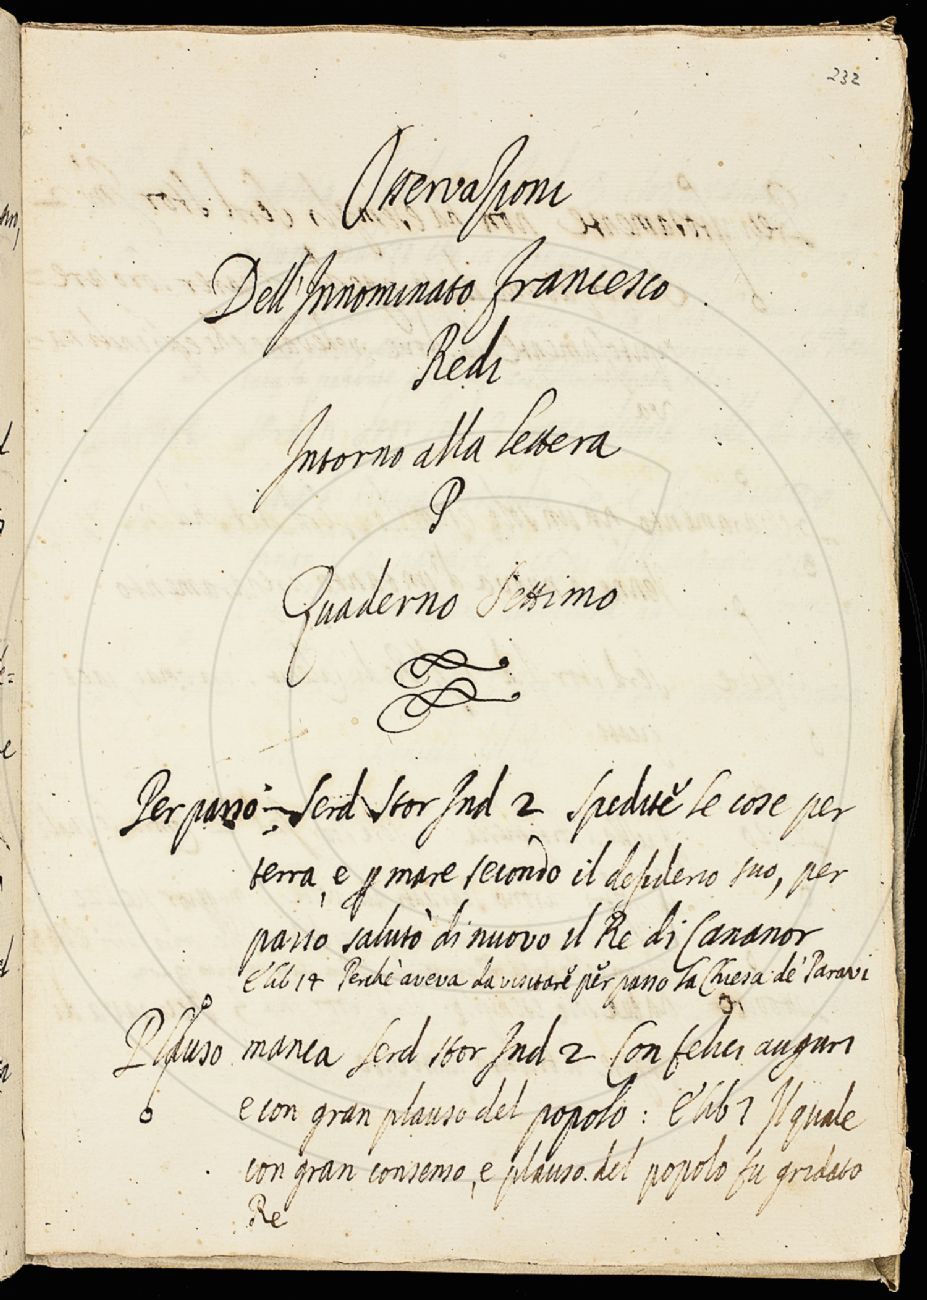 232
Osservazioni
Dell'Innominato Francesco
Redi
Intorno alla lettera
P
Quaderno Settimo
Per passo Serd Stor Ind 2 Spedite le cose per
terra, e p mare secondo il desiderio suo, per
passo salutò di nuovo il Re di Cananor
E lib 14 Perchè aveva da visitare per passo la Chiesa de' Paravi
Plauso manca Serd stor Ind 2 Con felici auguri
e con gran plauso del popolo: E lib 7 Il quale
con gran consenso, e plauso del popolo fu gridato
Re